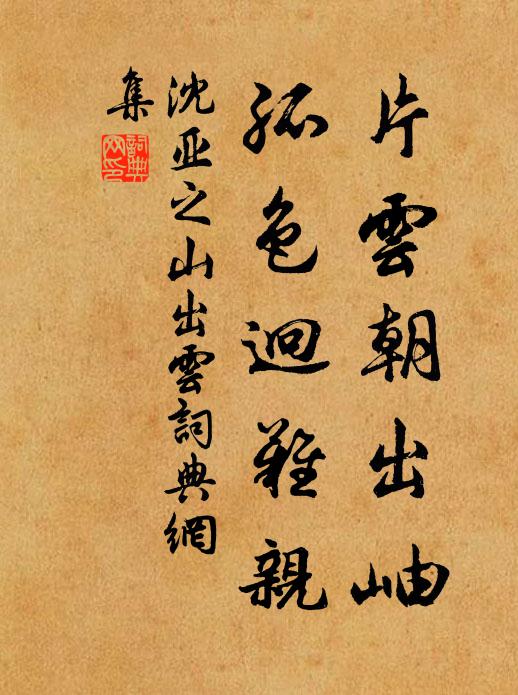 片雲朝出岫
孤色迥難親
沈亚之山出雲詞典網
集
詞典
网印